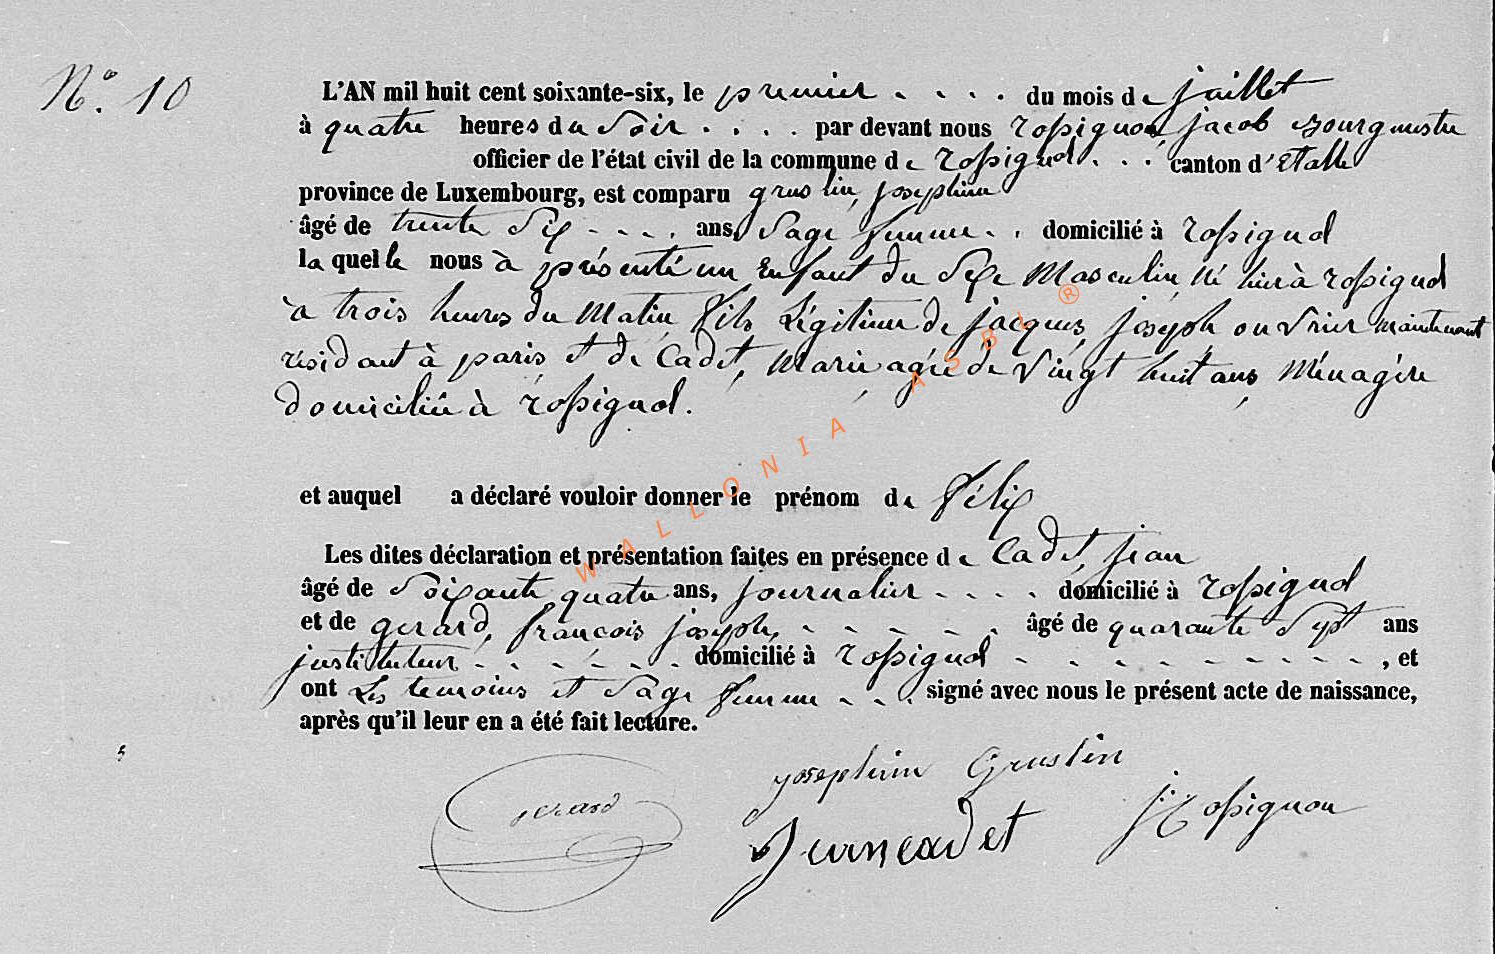 N.° 10
L'AN mil huit cent soixante-six, le premier . . . . du mois de juillet
à quatre heures du Soir . . . . par devant nous rossignon jacob Bourgmestre
officier de l'état civil de la commune de rossignol . . . canton d'Etalle
province de Luxembourg, est comparu gruslin, josephine
âgé de trente Six - - - . ans, Sage femme - . domicilié à rossignol
la quelle nous à présenté un Enfant du Sexe Masculin, Né hier à rossignol
à trois heures du Matin fils Légitime de jacques, joseph ouvrier maintenant
résidant à paris et de Cadet, Marie agée de vingt huit ans, Ménagère
domiciliée à rossignol.
et auquel a déclaré vouloir donner le prénom de félix
Les dites déclaration et présentation faites en présence de Cadet, jean
âgé de Soixante quatre ans, journalier - - - - domicilié à rossignol
et de gerard, françois joseph, - - - - - - âgé de quarante Sept ans
justituteur - - - - - - . domicilié à rossignol - - - - - - - - - - , et
ont Les temoins et Sage femme - - . signé avec nous le présent acte de naissance,
après qu'il leur en a été fait lecture.
josephine Gruslin
gerard
Jeancadet
J. rossignon
WALLONIA ASBL ®